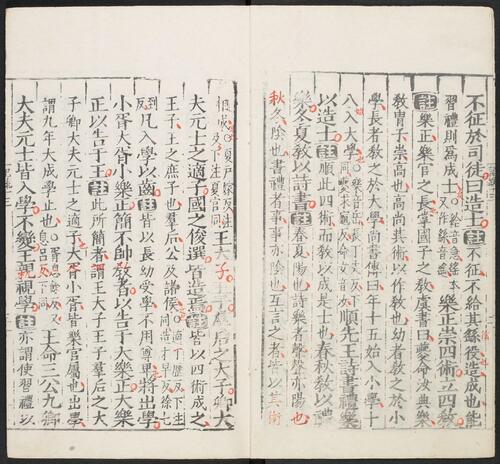 不征於司徒曰造士註不征不給其繇役造成也能
習禮則為成士○繇音遙本又作徭音遙樂正崇四術立四教
註樂正樂官之長掌國子之教虞書曰夔命汝典樂
教冑子崇高也高尚其術以作教也幼者教之於小
學長者教之於大學尚書傳曰年十五始入小學十
八入大學順先王詩書禮樂
以造士註順此四術而教以成是士也春秋教以禮
樂冬夏教以詩書註春夏陽也詩樂者聲聲亦陽也
秋冬陰也書禮者事事亦陰也互言之者皆以其術
相成王大子王子羣后之大子卿大
夫元士之適子國之俊選皆造焉註皆以四術成之
王子王之庶子也羣后公及諸侯
凡入學以齒註皆以長幼受學不用尊卑將出學
小胥大胥小樂正簡不帥教者以告于大樂正大樂
正以告于王註此所簡者謂王大子王子羣后之大
子卿大夫元士之適子大胥小胥皆樂官屬也出學
謂九年大成學止也王命三公九卿
大夫元士皆入學不變王親視學註亦謂使習禮以